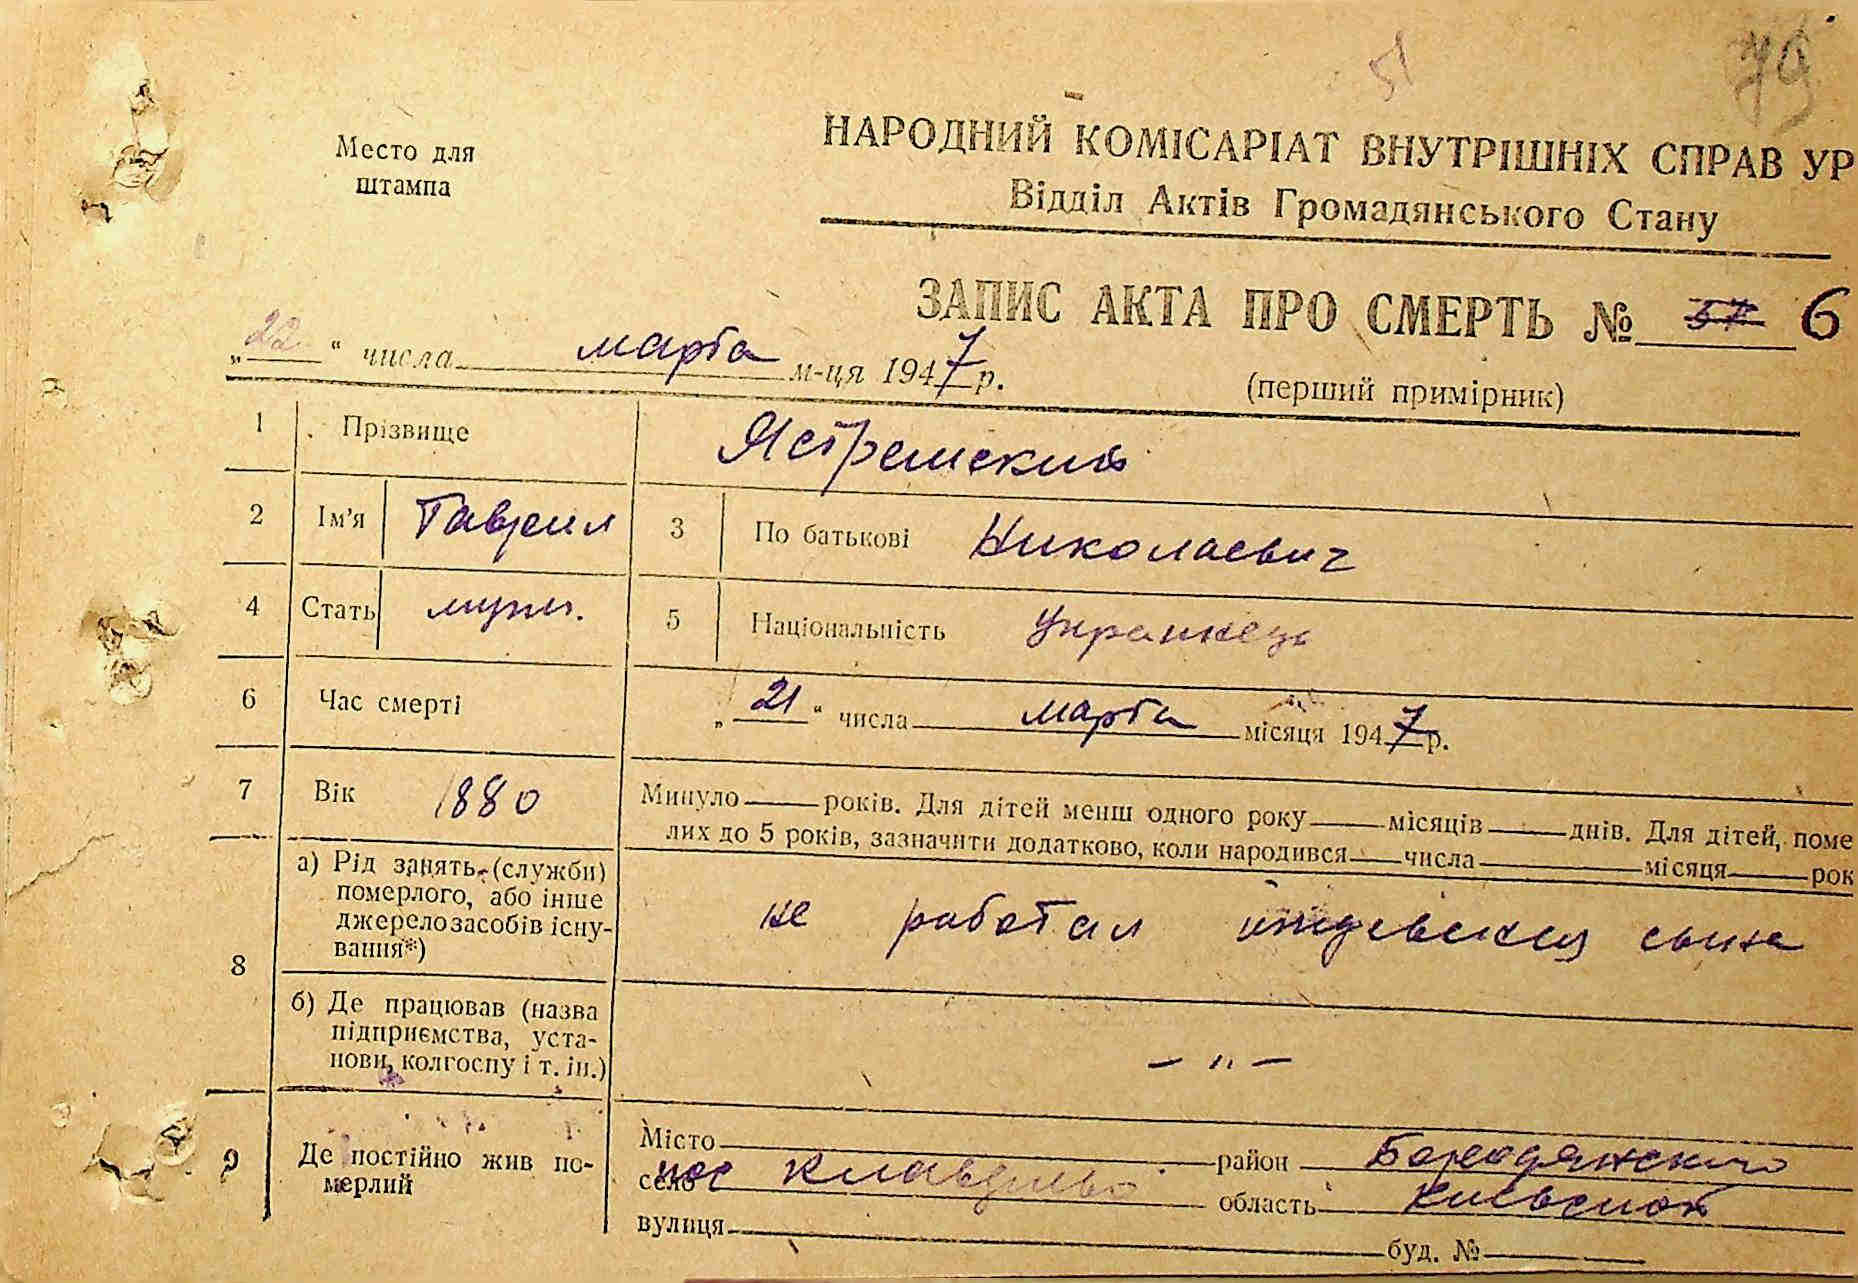 51
79
Место для
штампа
НАРОДНИЙ КОМІСАРІАТ ВНУТРІШНІХ СПРАВ УР
Відділ Актів Громадянського Стану
ЗАПИС АКТА ПРО СМЕРТЬ № 6
„22“ числа марта м-ця 1947 р.
(перший примірник)
1 Прізвище Ястремский
2 Ім’я Гавриил 3 По батькові Николаевич
4 Стать мужч. 5 Національність Украинець
6 Час смерті „21“ числа марта місяця 1947 р.
7 Вік 1880 Минуло років. Для дітей менш одного року місяців днів. Для дітей, поме
лих до 5 років, зазначити додатково, коли народився числа місяця рок
8 а) Рід занять (службн)
померлого, або інше
джерело засобів існу-
вання*)
не работал иждевении сына
б) Де працював (назва
підприємства, уста-
нови, колгоспу і т. ін.)
— „ —
9 Де постійно жив по-
мерлий
Місто район Бородянского
село пос Клавдиево область Киевской
вулиця буд. №